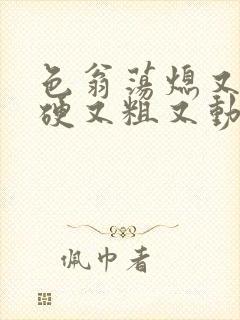 色翁荡熄又
硬又粗又動
佩巾者